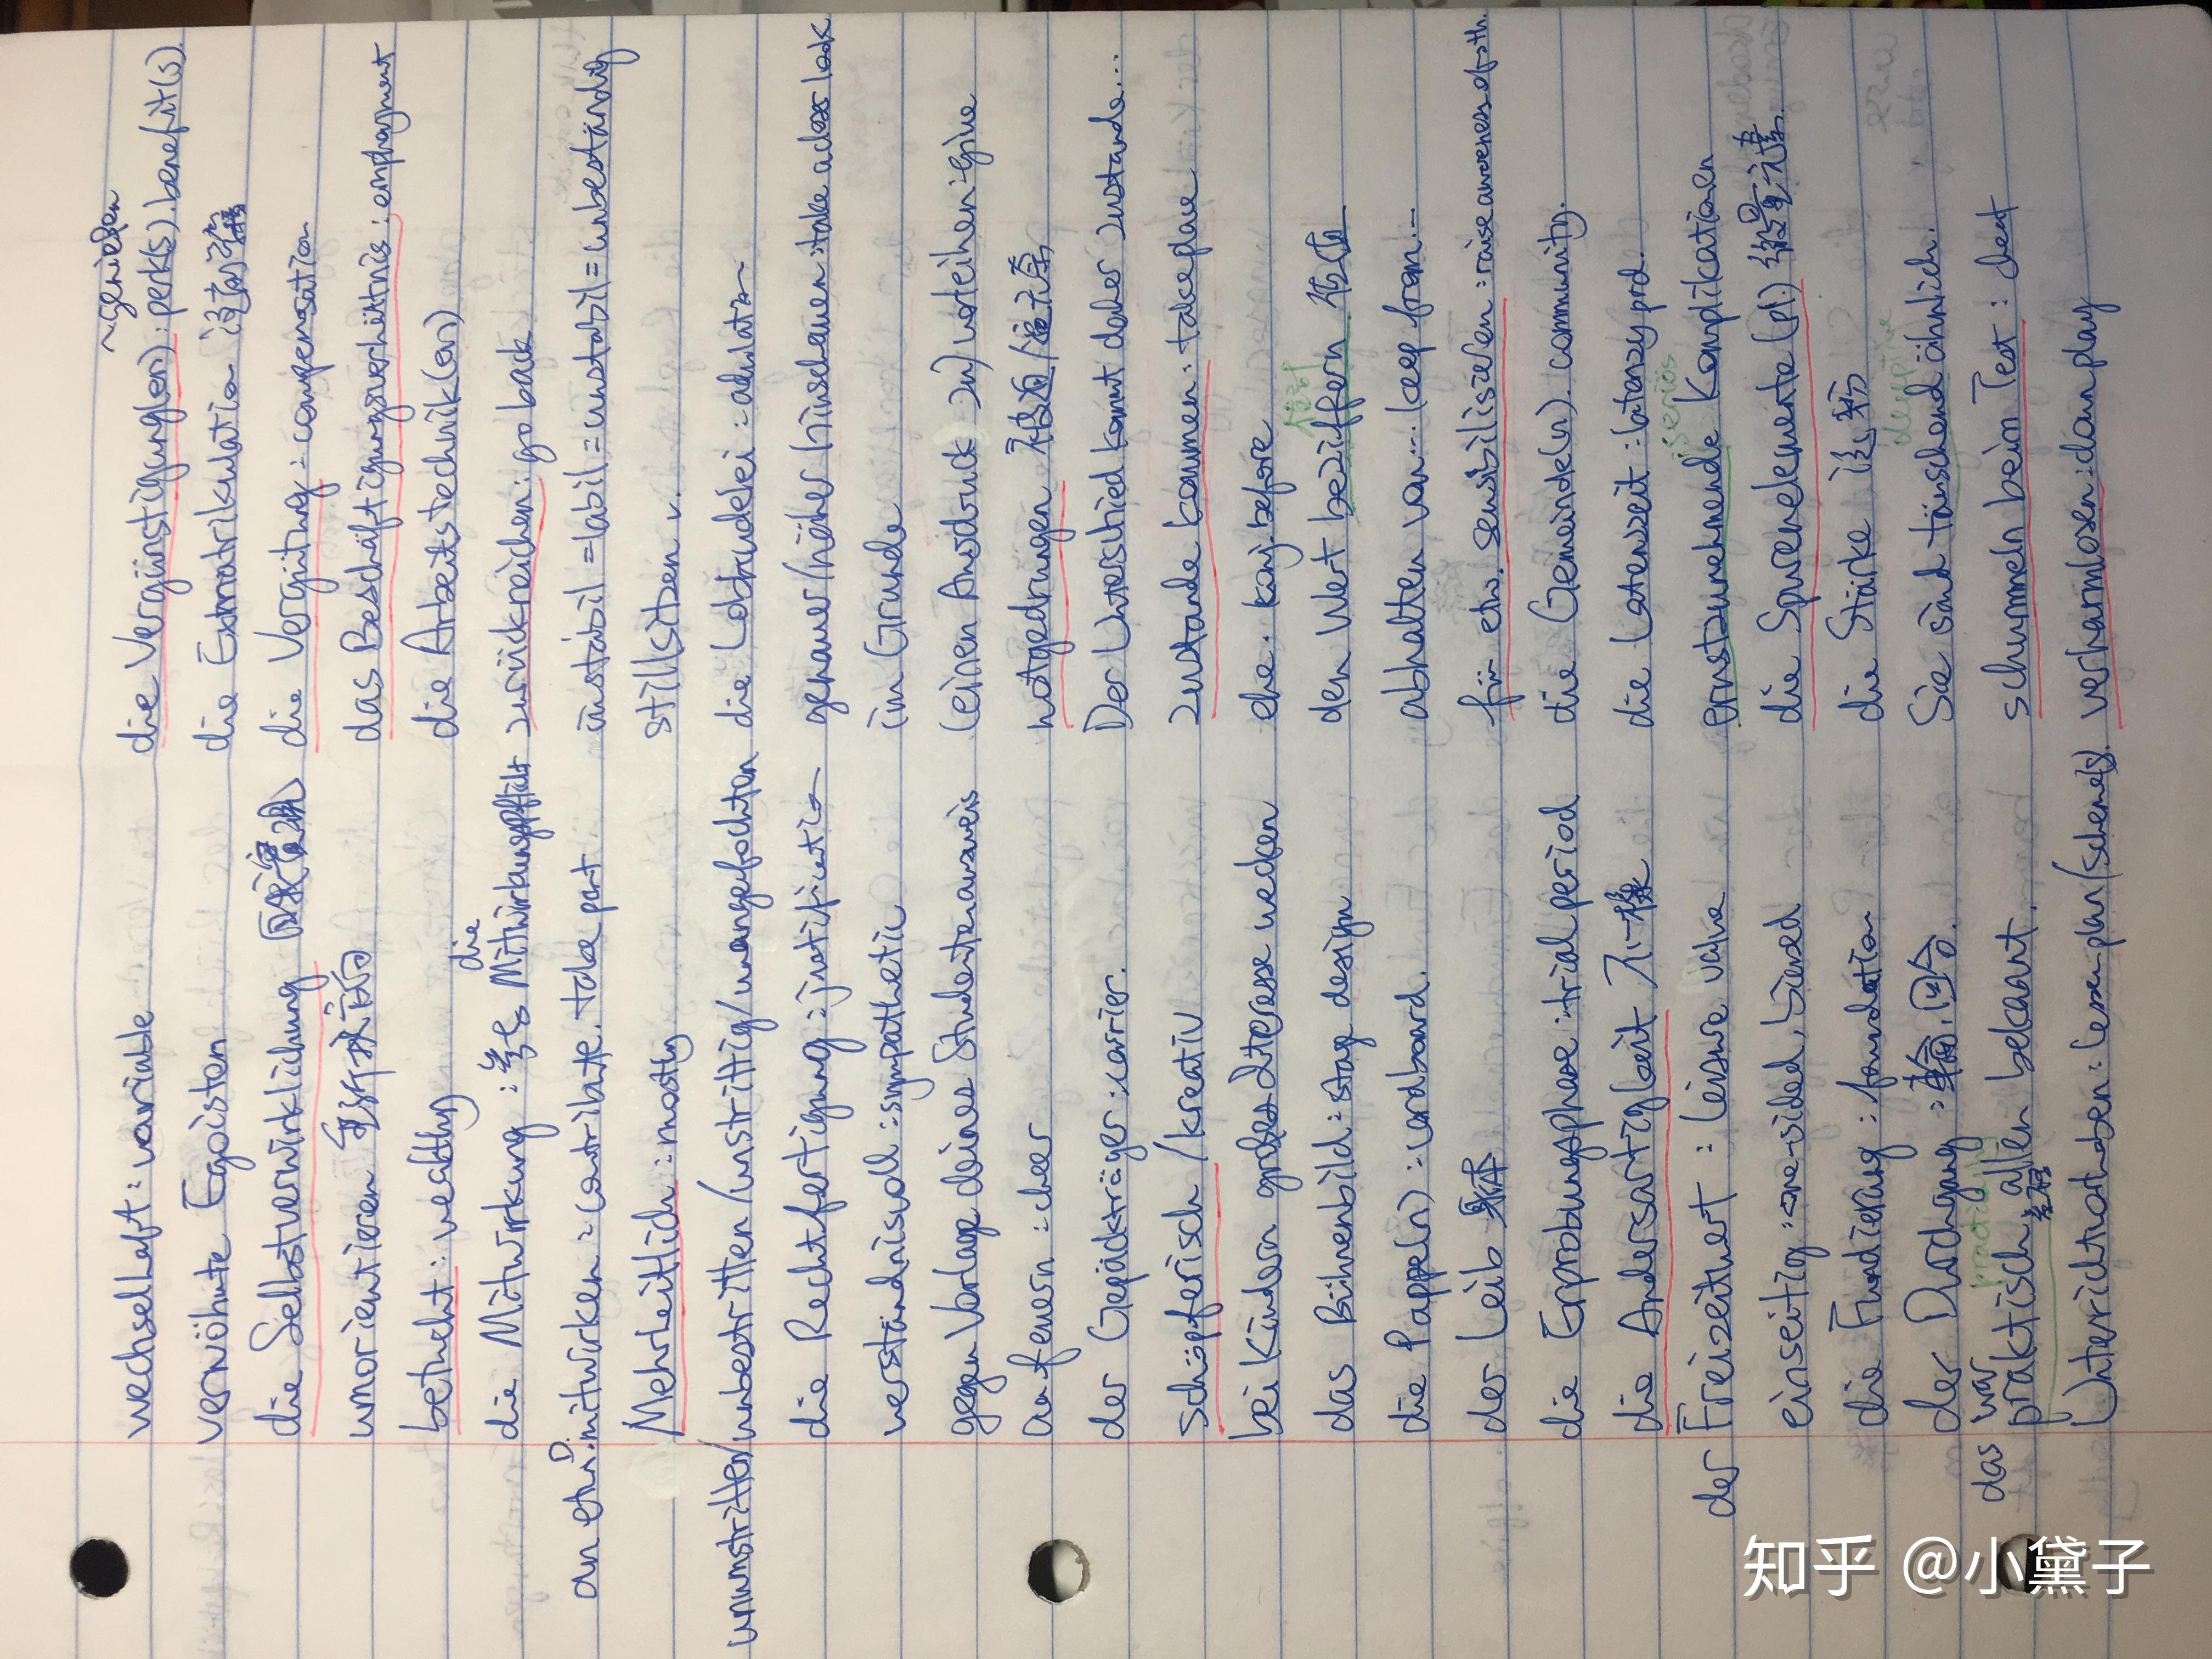 wechselhaft: variable
verwöhnte Egoisten
die Selbstverwirklichung 自我实现
umorientieren 重新认知
betucht: wealthy
die Mitwirkung: 参与 die Mitwirkungspflicht
an etw.D mitwirken: contribute. take part
Mehrheitlich: mostly
unumstritten/unbestritten/unstrittig/unangefochten
die Rechtfertigung: justification
verständnisvoll: sympathetic
gegen Vorlage deines Studentenausweis
anfeuern: cheer
der Gepäckträger: carrier.
schöpferisch/kreativ
bei Kindern großes Interesse wecken
das Bühnenbild: stag design
die Pappe(n): cardboard.
der Leib 身体
die Erprobungsphase: trial period
die Andersartigkeit 不一样
der Freizeitwert: leisure value
einseitig: one-sided, biased
die Fundierung: foundation
der Durchgang: 轮, 回合.
das war praktisch allen bekannt.
practically
Unterrichtsvorhaben: lesson plan/scheme(s)
~genießen
die Vergünstigung(en): perk(s). benefit(s)
die Exmatrikulation
die Vergütung: compensation
das Beschäftigungsverhältnis: employment
die Arbeitstechnik(en)
zurückreichen: go back
instabil = labil = unstabil = unbeständig
stillsitzen v.
die Lobhudelei: adulation
genauer/näher hinschauen: take a closer look
im Grunde
(einen Ausdruck zu) verleihen: give
notgedrungen 被迫/
Der Unterschied kommt daher zustande...
zustande kommen: take place
ehe. konj. before
den Wert beziffern 估值
abhalten von... keep from...
für etw. sensibilisieren: raise awareness of sth.
die Gemeinde(n). community.
die Latenzzeit: latenzy prd.
seriös
ernstzunehmende Komplikationen
die Spurenelemente (pl) 微量元素.
die Stärke 淀粉
deceptive
Sie sind täuschend ähnlich.
schummeln beim Test: cheat
verharmlosen: downplay
知乎 @小黛子